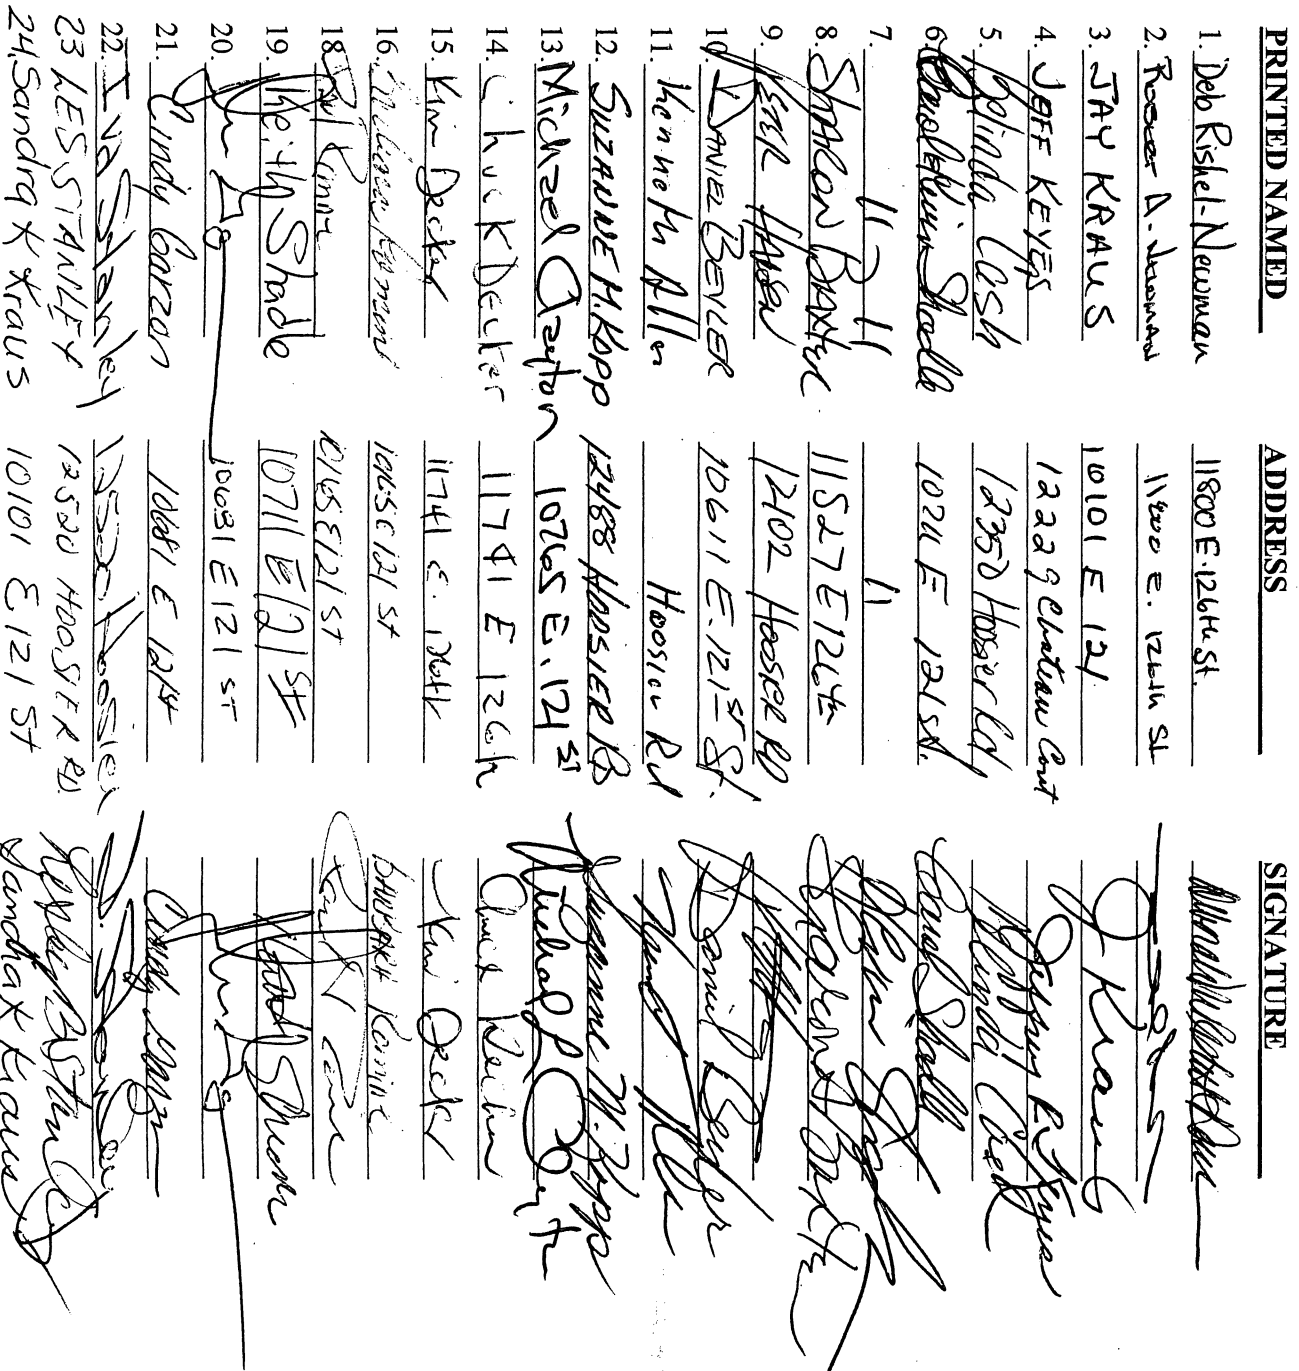 PRINTED NAMED ADDRESS SIGNATURE
1. Deb Rishel-Newman 11800 E. 126th St.
2. A. Newman 11800 E. 126th St
3. JAY KRAUS 10101 E 121 Jay Kraus
4. JEFF KEYES 12229 Chateau Court Jeffrey R. Keyes
5. Belinda Cash 12350 Hoosier Rd Belinda Cash
6. Shadle 10211 E 121 st.
7. " " "
8. SHARON BAXTER 11527 E 126th Sharon Baxter
9. HADEN 12402 HOOSIER RD
10. DANIEL BEILER 10611 E. 121st St. Daniel Beiler
11. Kenneth Allen Hoosier Rd
12. SUZANNE M. Kopp 12488 HOOSIER RD Suzanne M. Kopp
13. Michael Clayton 10265 E. 121 ST Michael
14. Chuck Decker 11741 E 126th Chuck Decker
15. Kim Decker 11741 E. 126th Kim Decker
16. 10165 E 121 St
18. 10165 E 121 St
19. Keith Shade 10711 E 121 St
20. 10681 E 121 ST
21. Cindy Garzon 10681 E 121st Cindy Garzon
22. Iva Stanley 12520 Hoosier
23 LES STANLEY 12520 HOOSIER Rd.
24. Sandra K Kraus 10101 E 121 St Sandra K Kraus